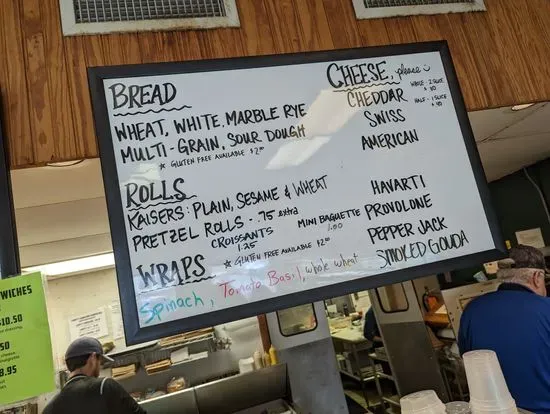 BREAD
WHEAT, WHITE, MARBLE RYE
MULTI-GRAIN, SOUR DOUGH
* GLUTEN FREE AVAILABLE $2.00
ROLLS
KAISERS: PLAIN, SESAME & WHEAT
PRETZEL ROLLS - .75 extra
CROISSANTS
1.25
MINI BAGUETTE
1.00
* GLUTEN FREE AVAILABLE $2.00
WRAPS
Spinach, Tomato Basil, whole wheat
CHEESE, please
WHOLE - 2 SLICE
HALF - 1 SLICE
CHEDDAR
SWISS
AMERICAN
HAVARTI
PROVOLONE
PEPPER JACK
SMOKED GOUDA
WICHES
$10.50
50
8.95